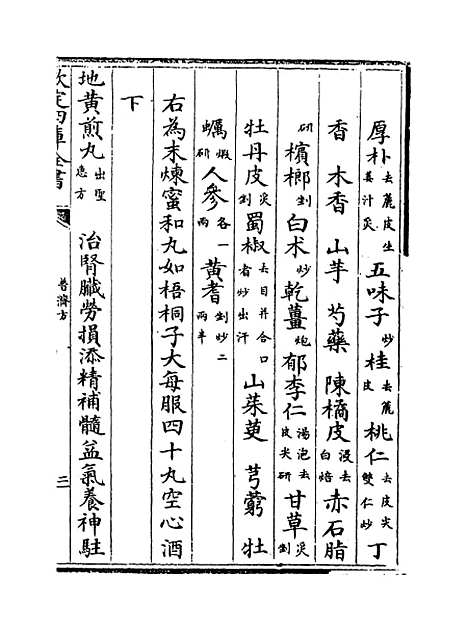 厚朴去麄皮生薑汁炙 五味子炒 桂去麄皮 桃仁去皮尖雙仁炒 丁
香 木香 山芋 芍藥 陳橘皮浸去白焙 赤石脂
研 檳榔剉 白术炒 乾薑炮 郁李仁湯泡去皮尖研 甘草炙剉
牡丹皮炙剉 蜀椒去目并合口者炒出汗 山茱萸 芎藭 牡
蠣煅研 人參各一兩 黃耆剉炒二兩半
右為末煉蜜和丸如梧桐子大每服四十丸空心酒
下
地黃煎丸出聖惠方 治腎臟勞損添精補髓益氣養神駐
欽定四庫全書 普濟方 三